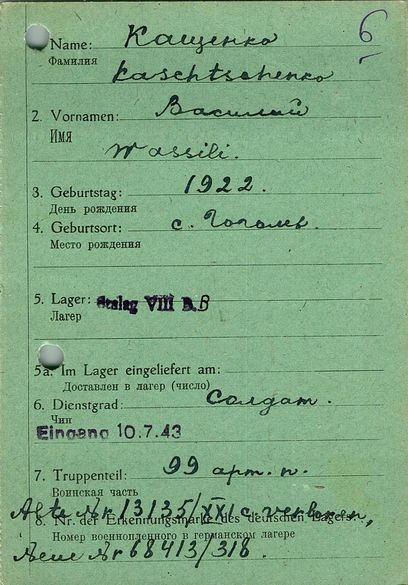 6
Name: Кащенко
Фамилия
Kaschtschenko
2. Vornamen: Василий
ИМЯ
Wassili.
3. Geburtstag: 1922.
День рождения
4. Geburtsort: с. Гоголев.
Место рождения
5. Lager: Stalag VIII B. B
Лагер
5a. Im Lager eingeliefert am:
Доставлен в лагер (число)
6. Dienstgrad: Солдат.
Чин
Eingang 10.7.43
7. Truppenteil: 99 арт. п.
Воинская часть
Alte Nr 13135/XXI c. verloren,
8. Nr. der Erkennungsmarke des deutschen Lagers:
Номер военнопленного в германском лагере
Neue Nr 68413/318.